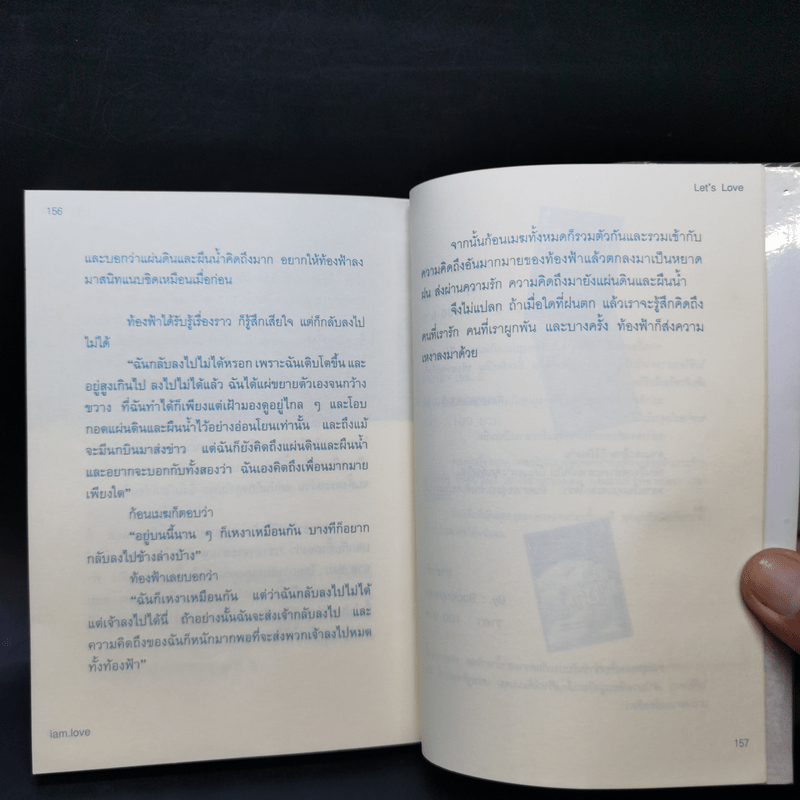 156
และบอกว่าแผ่นดินและผืนน้ำคิดถึงมาก อยากให้ท้องฟ้าลง
มาสนิทแนบชิดเหมือนเมื่อก่อน
ท้องฟ้าได้รับรู้เรื่องราว ก็รู้สึกเสียใจ แต่ก็กลับลงไป
ไม่ได้
“ฉันกลับลงไปไม่ได้หรอก เพราะฉันเติบโตขึ้น และ
อยู่สูงเกินไป ลงไปไม่ได้แล้ว ฉันได้แผ่ขยายตัวเองจนกว้าง
ขวาง ที่ฉันทำได้ก็เพียงแต่เฝ้ามองดูอยู่ไกล ๆ และโอบ
กอดแผ่นดินและผืนน้ำไว้อย่างอ่อนโยนเท่านั้น และถึงแม้
จะมีนกบินมาส่งข่าว แต่ฉันก็ยังคิดถึงแผ่นดินและผืนน้ำ
และอยากจะบอกกับทั้งสองว่า ฉันเองคิดถึงเพื่อนมากมาย
เพียงใด”
ก้อนเมฆก็ตอบว่า
“อยู่บนนี้นาน ๆ ก็เหงาเหมือนกัน บางทีก็อยาก
กลับลงไปข้างล่างบ้าง”
ท้องฟ้าเลยบอกว่า
“ฉันก็เหงาเหมือนกัน แต่ว่าฉันกลับลงไปไม่ได้
แต่เจ้าลงไปได้นี่ ถ้าอย่างนั้นฉันจะส่งเจ้ากลับลงไป และ
ความคิดถึงของฉันก็หนักมากพอที่จะส่งพวกเจ้าลงไปหมด
ทั้งท้องฟ้า”
iam.love
Let's Love
จากนั้นก้อนเมฆทั้งหมดก็รวมตัวกันและรวมเข้ากับ
ความคิดถึงอันมากมายของท้องฟ้าแล้วตกลงมาเป็นหยาด
ฝน ส่งผ่านความรัก ความคิดถึงมายังแผ่นดินและผืนน้ำ
จึงไม่แปลก ถ้าเมื่อใดที่ฝนตก แล้วเราจะรู้สึกคิดถึง
คนที่เรารัก คนที่เราผูกพัน และบางครั้ง ท้องฟ้าก็ส่งความ
เหงาลงมาด้วย
157